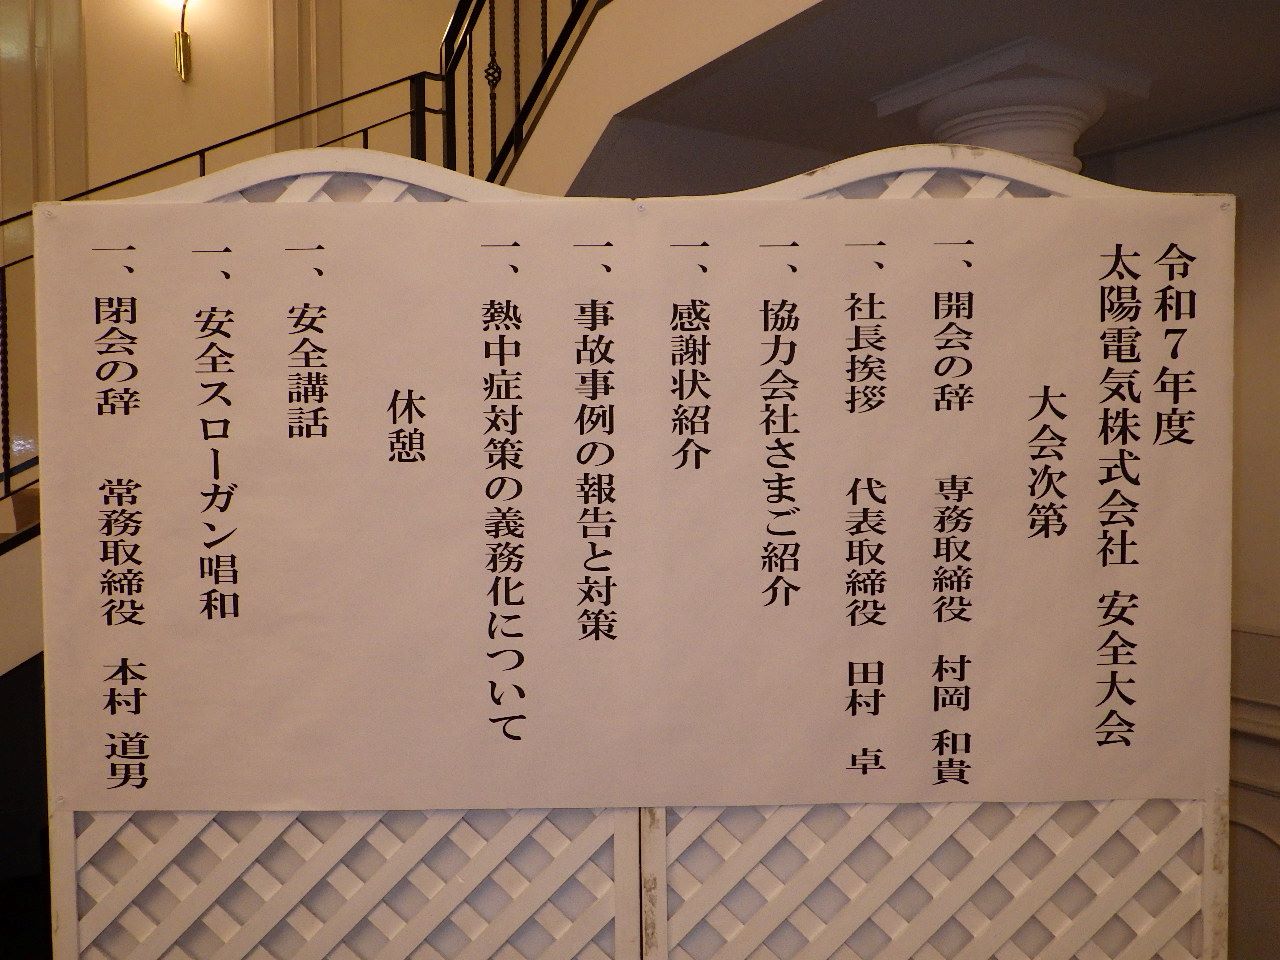 令和7年度
太陽電気株式会社 安全大会
大会次第
一、開会の辞 専務取締役 村岡 和貴
一、社長挨拶 代表取締役 田村 卓
一、協力会社さまご紹介
一、感謝状紹介
一、事故事例の報告と対策
一、熱中症対策の義務化について
休憩
一、安全講話
一、安全スローガン唱和
一、閉会の辞 常務取締役 本村 道男